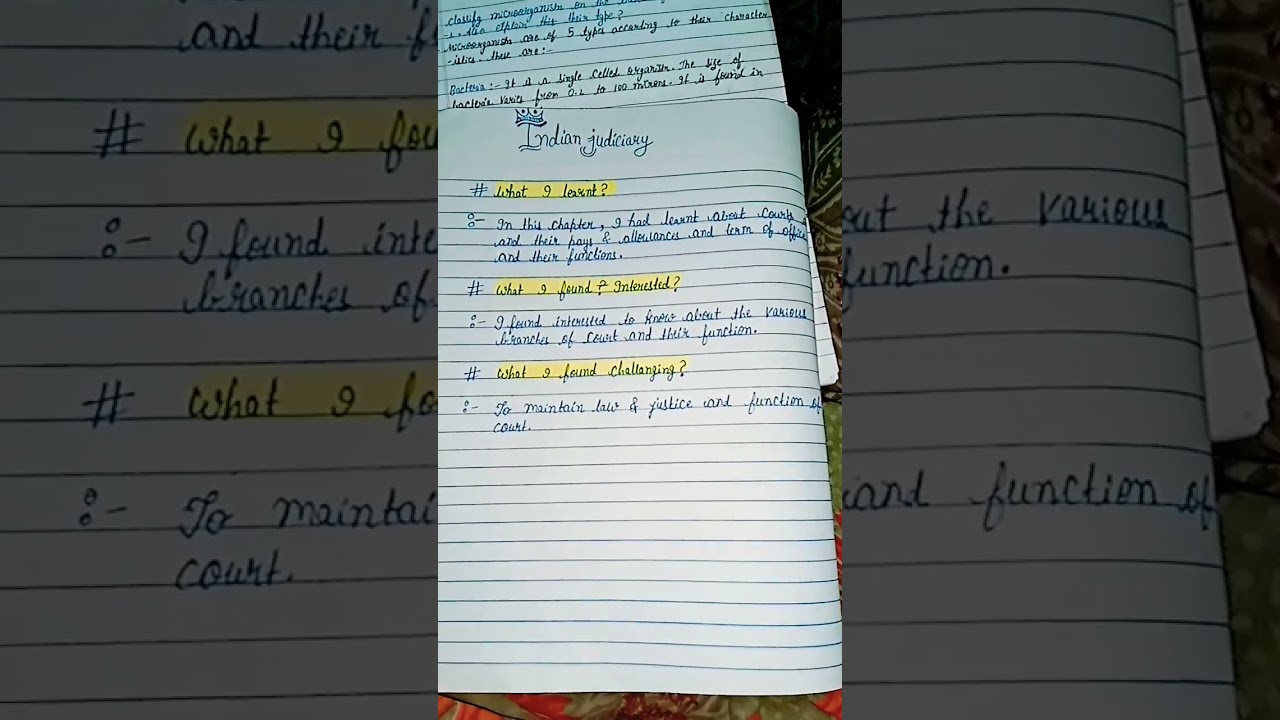 classify microorganism on the
also explain their type?
Microorganism are of 5 types according to their character
-istics. these are :-
Bacteria :- It is a single celled organism. The size of
bacteria varies from 0.2 to 100 microns. It is found in
Indian judiciary
# What I learnt?
:- In this chapter, I had learnt about courts
and their pays & allowances and term of office
and their functions.
# What I found ? Interested?
:- I found interested to know about the various
branches of court and their function.
# What I found challanging?
:- To maintain law & justice and function of
court.
and their f
# What I fou
:- I found inte
branches of
# What I fo
:- To maintai
court.
out the various
function.
and function of